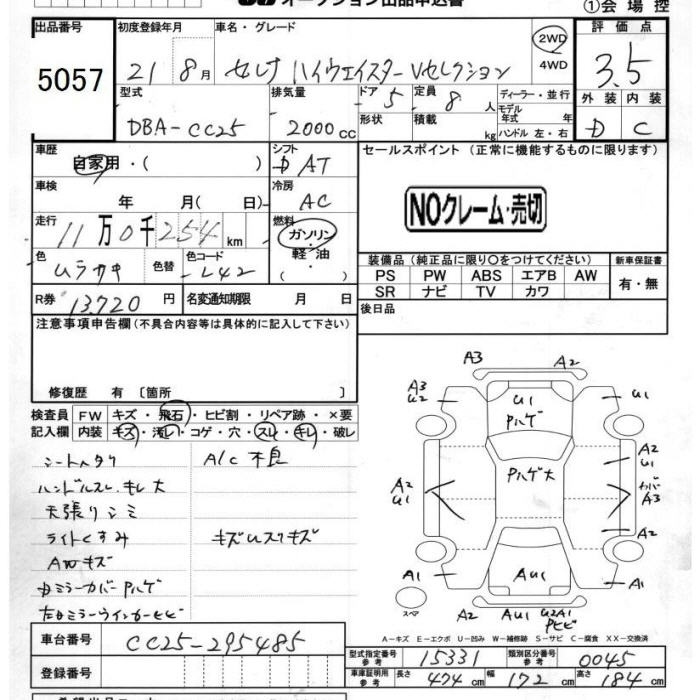 オークション出品申込書
①会場控
出品番号 初度登録年月 車名・グレード 2WD 4WD 評価点
5057 21 8月 セレナ ハイウェイスターVセレクション 3.5
型式 排気量 ドア 5 定員 8 人 ディーラー・並行 外装 内装
DBA-CC25 2000cc 形状 積載 kg モデル年式 年式 ハンドル 左・右 D C
車歴 自家用・( ) シフト AT セールスポイント (正常に機能するものに限ります)
車検 年 月( 日) 冷房 AC
NOクレーム・売切
走行 11万0千254km 燃料 ガソリン・軽油・( )
色 ムラサキ 色替 色コード L42
装備品 (純正品に限り○をつけてください) 新車保証書
PS PW ABS エアB AW 有・無
SR ナビ TV カワ
R券 13,720円 名変通知期限 月 日 後日品
注意事項申告欄 (不具合内容等は具体的に記入して下さい)
修復歴 有 〔箇所 〕
検査員記入欄 FW キズ・飛石・ヒビ割・リペア跡・×要
内装 キズ・汚レ・コゲ・穴・スレ・キレ・破レ
シートヘタリ A/C不良
ハンドルスレ.キレ大
天張りシミ
ライトくすみ キズUスリキズ
AWキズ
ミラーカバーハゲ
左ミラーウインカーヒビ
A3 A2
A3 U2 U1 ハゲ U1
A2 U1
A2 U1 ハゲ大 カバー A3
A2
A1 AU1 A1
スペア A2 AU1 U2A1
A-キズ E-エクボ U-凹み W-補修跡 S-サビ C-腐食 XX-交換済
車台番号 CC25-295485
型式指定番号 参考 15331 類別区分番号 参考 0045
登録番号
車庫証明用 参考 長さ 474cm 幅 172cm 高さ 184cm